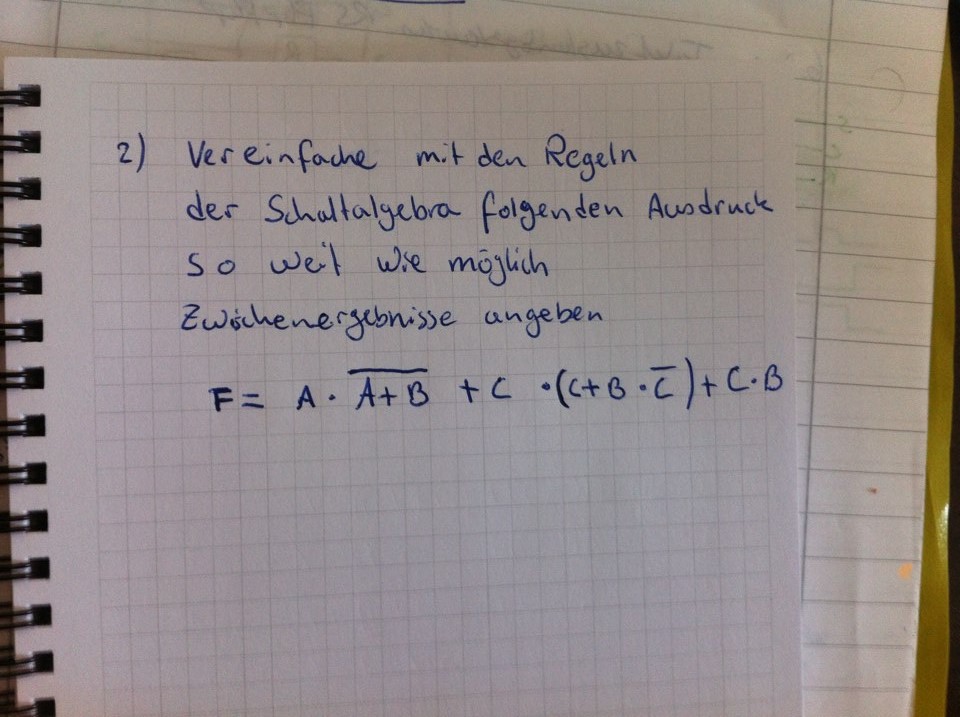 2) Vereinfache mit den Regeln
der Schaltalgebra folgenden Ausdruck
so weit wie möglich
Zwischenergebnisse angeben
F = A · \overline{A+B} + C · (C+B · \overline{C}) + C · B